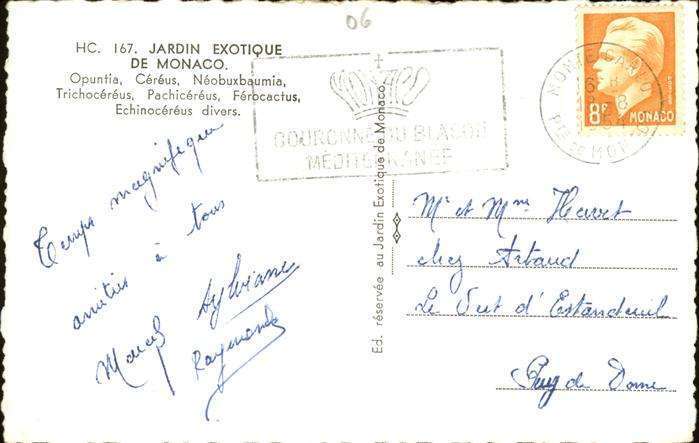 06
HC. 167. JARDIN EXOTIQUE
DE MONACO.
Opuntia, Céréus, Néobuxbaumia,
Trichocéréus, Pachicéréus, Férocactus,
Echinocéréus divers.
COURONNE DU BLASON
MÉDITERRANÉE
MONTE-CARLO
8F MONACO
Temps magnifique
amitiés à tous
Marcel Sylviane
Raymonde
Ed. réservée au Jardin Exotique de Monaco
Mr et Mme Hervet
chez Artaud
Le d'Estandeuil
Puy de Dome